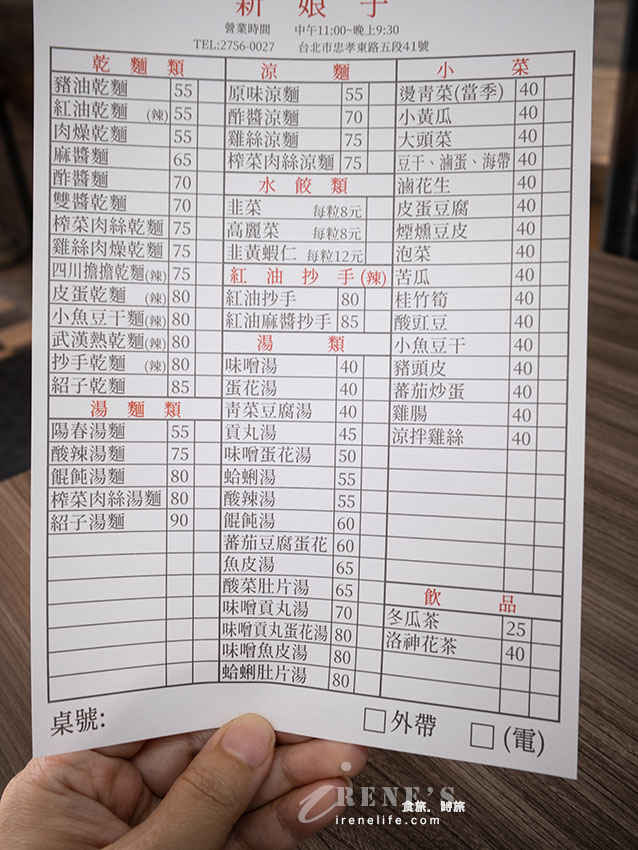 新娘子
營業時間 中午11:00~晚上9:30
TEL:2756-0027 台北市忠孝東路五段41號
乾麵類
豬油乾麵 55
紅油乾麵 (辣) 55
肉燥乾麵 55
麻醬麵 65
酢醬麵 70
雙醬乾麵 70
榨菜肉絲乾麵 75
雞絲肉燥乾麵 75
四川擔擔乾麵(辣) 75
皮蛋乾麵 (辣) 80
小魚豆干麵(辣) 80
武漢熱乾麵(辣) 80
抄手乾麵 (辣) 80
紹子乾麵 85
湯麵類
陽春湯麵 55
酸辣湯麵 75
餛飩湯麵 80
榨菜肉絲湯麵 80
紹子湯麵 90
涼麵
原味涼麵 55
酢醬涼麵 70
雞絲涼麵 75
榨菜肉絲涼麵 75
水餃類
韭菜 每粒8元
高麗菜 每粒8元
韭黃蝦仁 每粒12元
紅油抄手(辣)
紅油抄手 80
紅油麻醬抄手 85
湯類
味噌湯 40
蛋花湯 40
青菜豆腐湯 40
貢丸湯 45
味噌蛋花湯 50
蛤蜊湯 55
酸辣湯 55
餛飩湯 60
蕃茄豆腐蛋花 60
魚皮湯 65
酸菜肚片湯 65
味噌貢丸湯 70
味噌貢丸蛋花湯 80
味噌魚皮湯 80
蛤蜊肚片湯 80
小菜
燙青菜(當季) 40
小黃瓜 40
大頭菜 40
豆干、滷蛋、海帶 40
滷花生 40
皮蛋豆腐 40
煙燻豆皮 40
泡菜 40
苦瓜 40
桂竹筍 40
酸豇豆 40
小魚豆干 40
豬頭皮 40
蕃茄炒蛋 40
雞腸 40
涼拌雞絲 40
飲品
冬瓜茶 25
洛神花茶 40
桌號: □外帶 □(電)
iRENE'S
食旅．時旅
irenelife.com